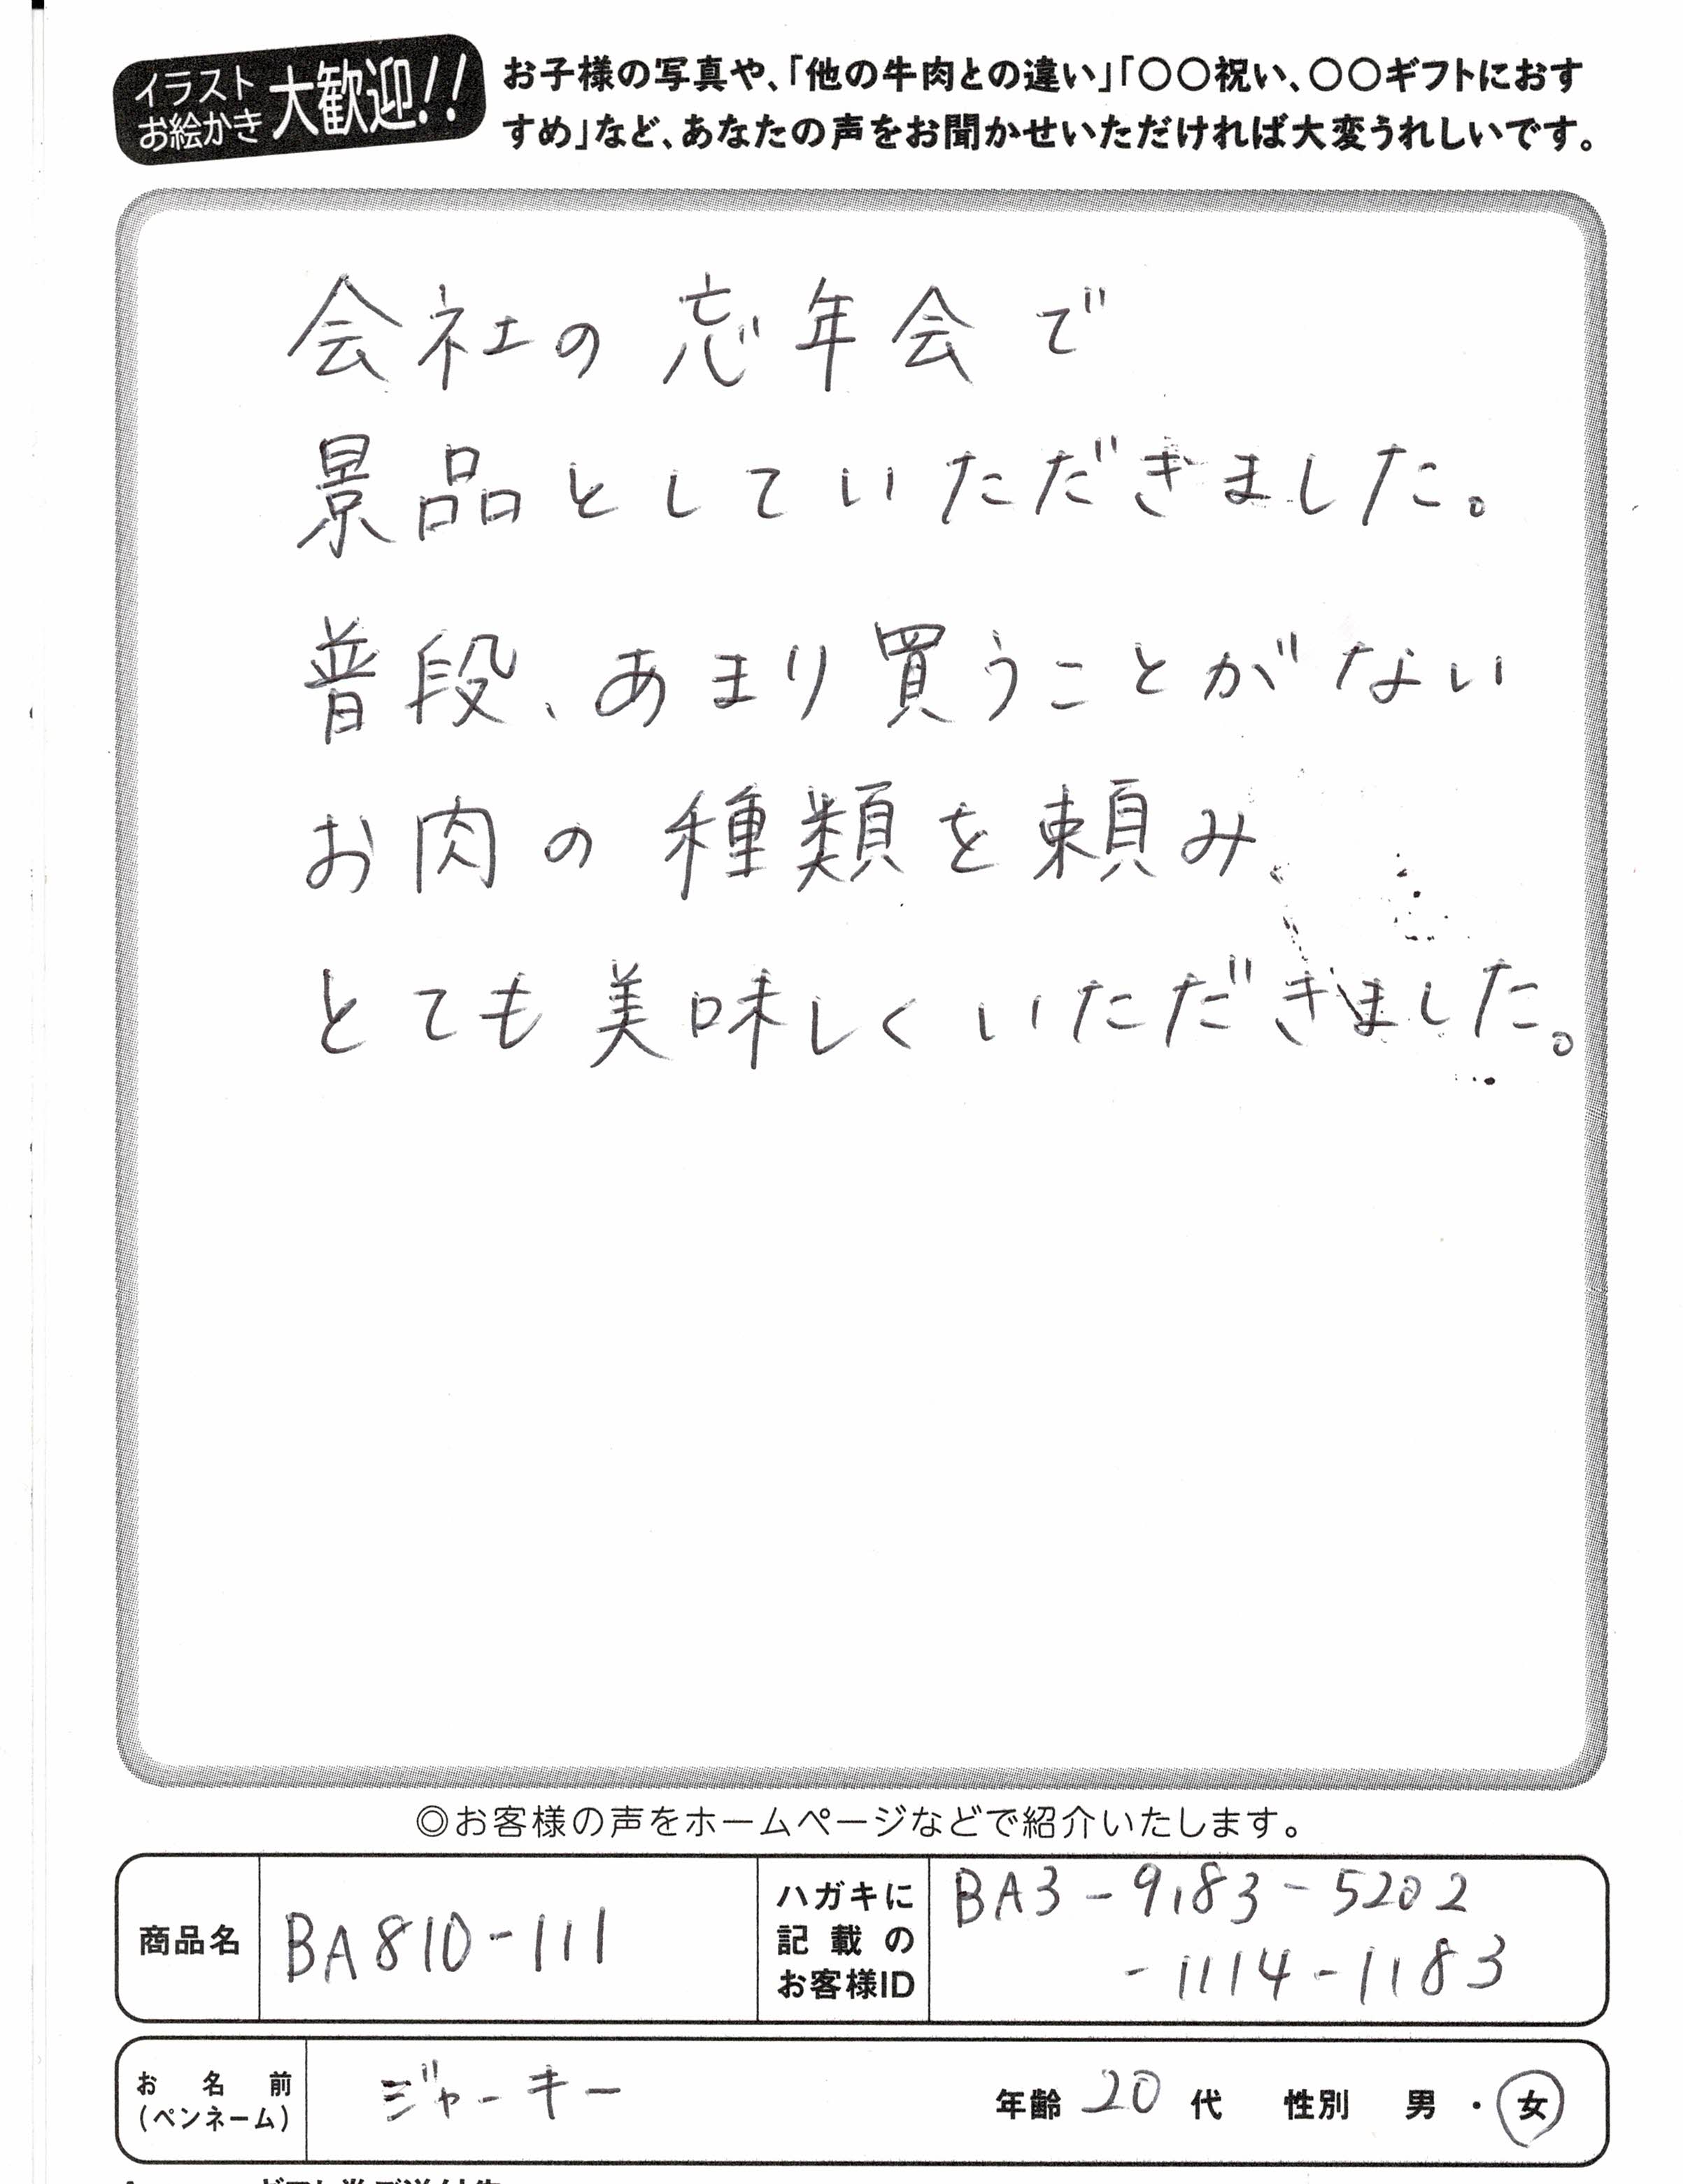 イラスト
お絵かき
大歓迎!!
お子様の写真や、「他の牛肉との違い」「〇〇祝い、〇〇ギフトにおす
すめ」など、あなたの声をお聞かせいただければ大変うれしいです。
会社の忘年会で
景品としていただきました。
普段、あまり買うことがない
お肉の種類を頼み、
とても美味しくいただきました。
◎お客様の声をホームページなどで紹介いたします。
商品名
BA810-111
ハガキに
記載の
お客様ID
BA3-9183-5202
-1114-1183
お名前
(ペンネーム)
ジャーキー
年齢 20 代 性別 男・女